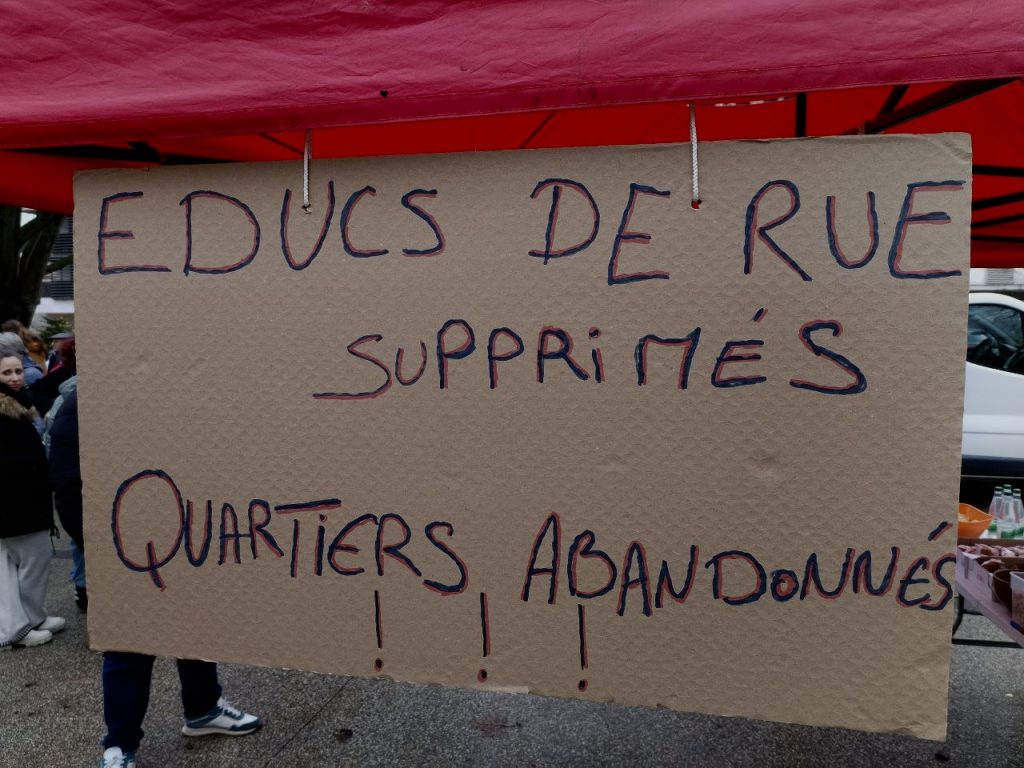 EDUCS DE RUE
SUPPRiMÉS
QUARTiERS ABANDONNÉS
! ! !